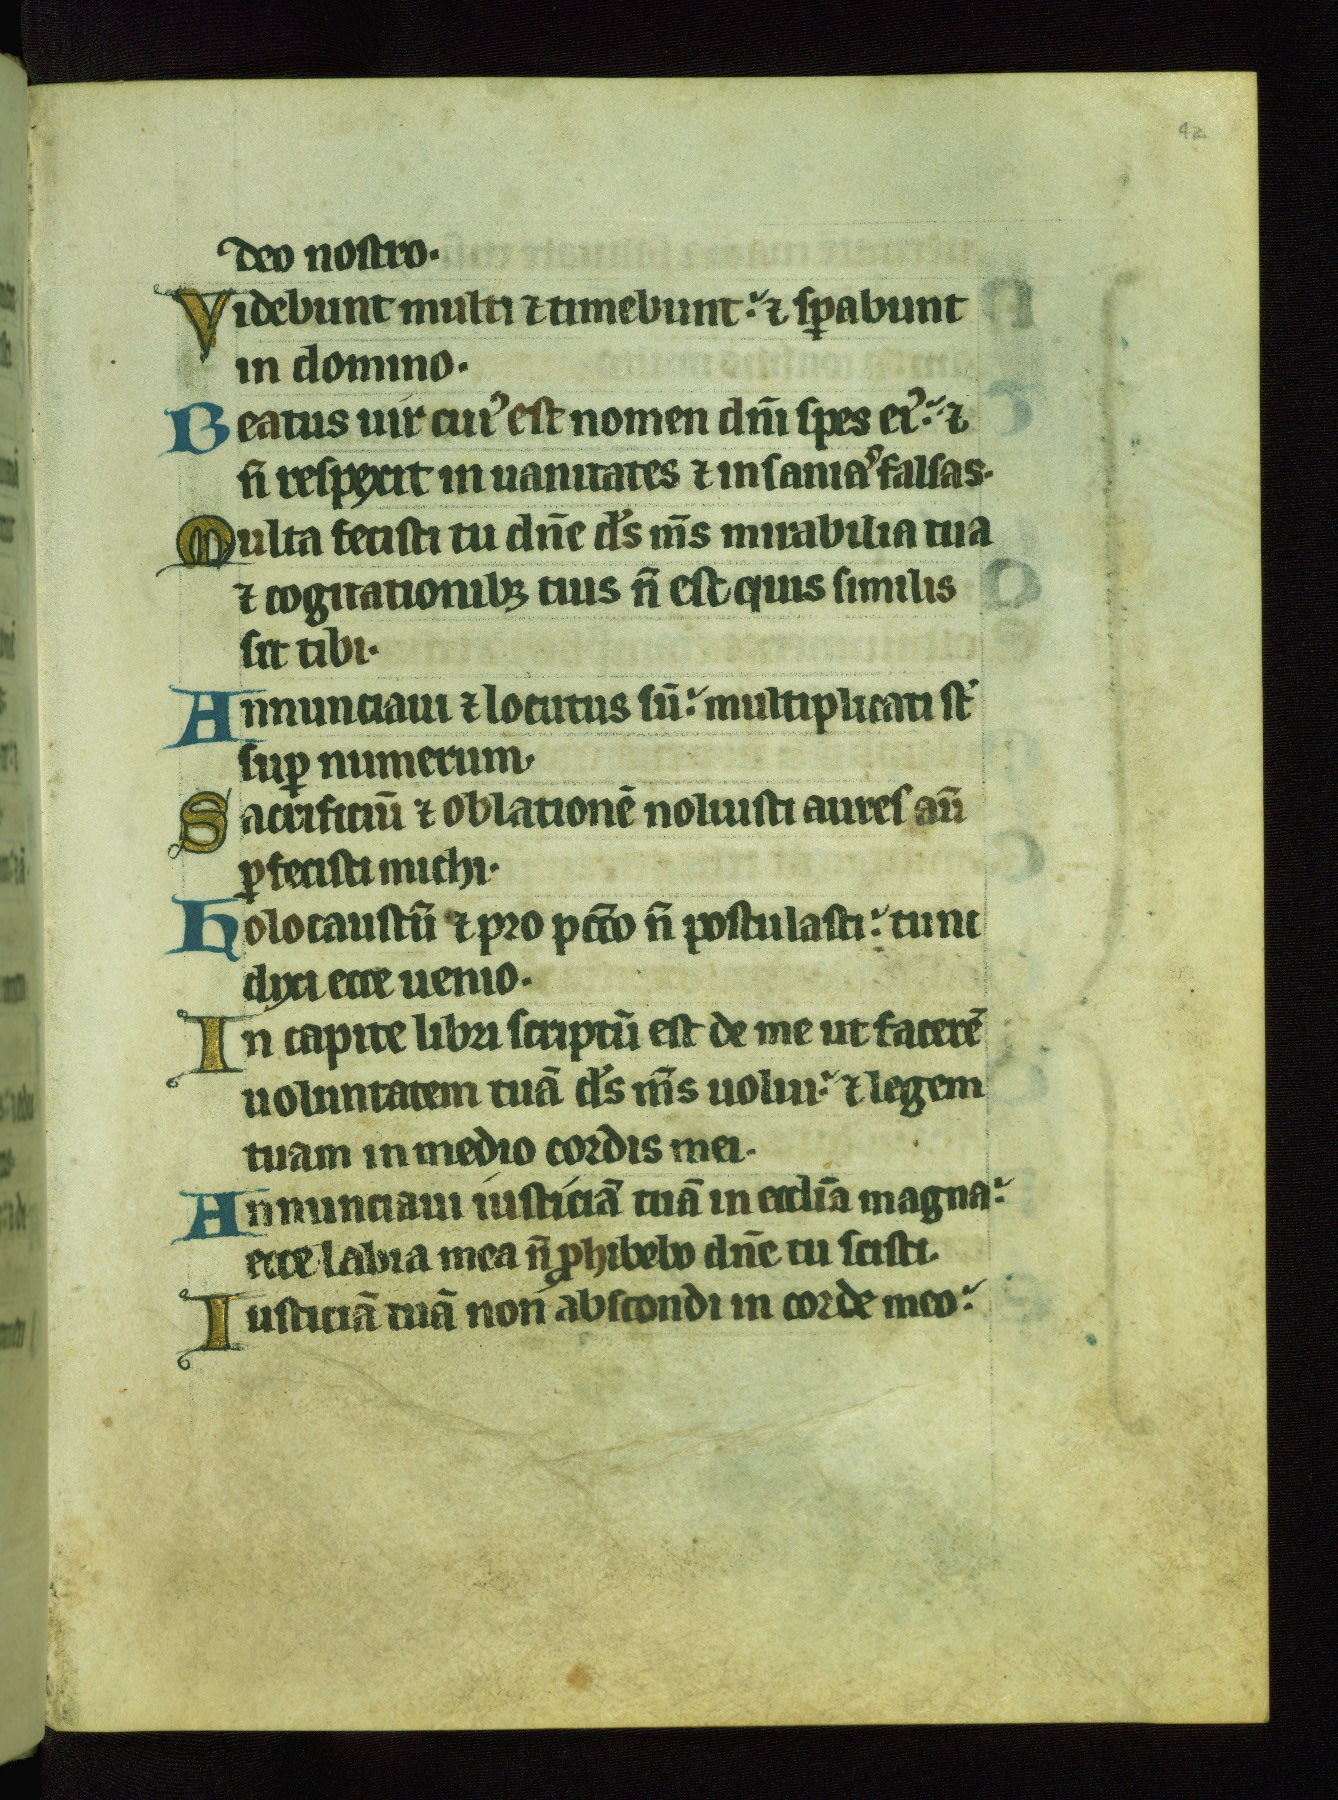 42
deo nostro·
Videbunt multi ⁊ timebunt: ⁊ sp̲abunt
in domino·
Beatus uir cui᷒ est nomen dn̄i spes ei᷒: ⁊
n̄ respexit in uanitates ⁊ insania᷒ falsas·
Multa fecisti tu dn̄e ds̄ m̄s mirabilia tua
⁊ cogitationibꝫ tuis n̄ est quis similis
sit tibi·
Annunciaui ⁊ locutus sū: multiplicati st̄
suꝑ numerum·
Sacrificiū ⁊ oblationē noluisti aures aū
ꝑfecisti michi·
Holocaustū ⁊ pro pcc̄o n̄ postulasti: tunc
dixi ecce uenio·
In capite libri scriptū est de me ut facerē
uoluntatem tuā ds̄ m̄s uolui: ⁊ legem
tuam in medio cordis mei·
Annunciaui iusticiā tuā in eccl̄ia magna:
ecce labia mea n̄ ꝓhibebo dn̄e tu scisti·
Iusticiā tuā non abscondi in corde meo: